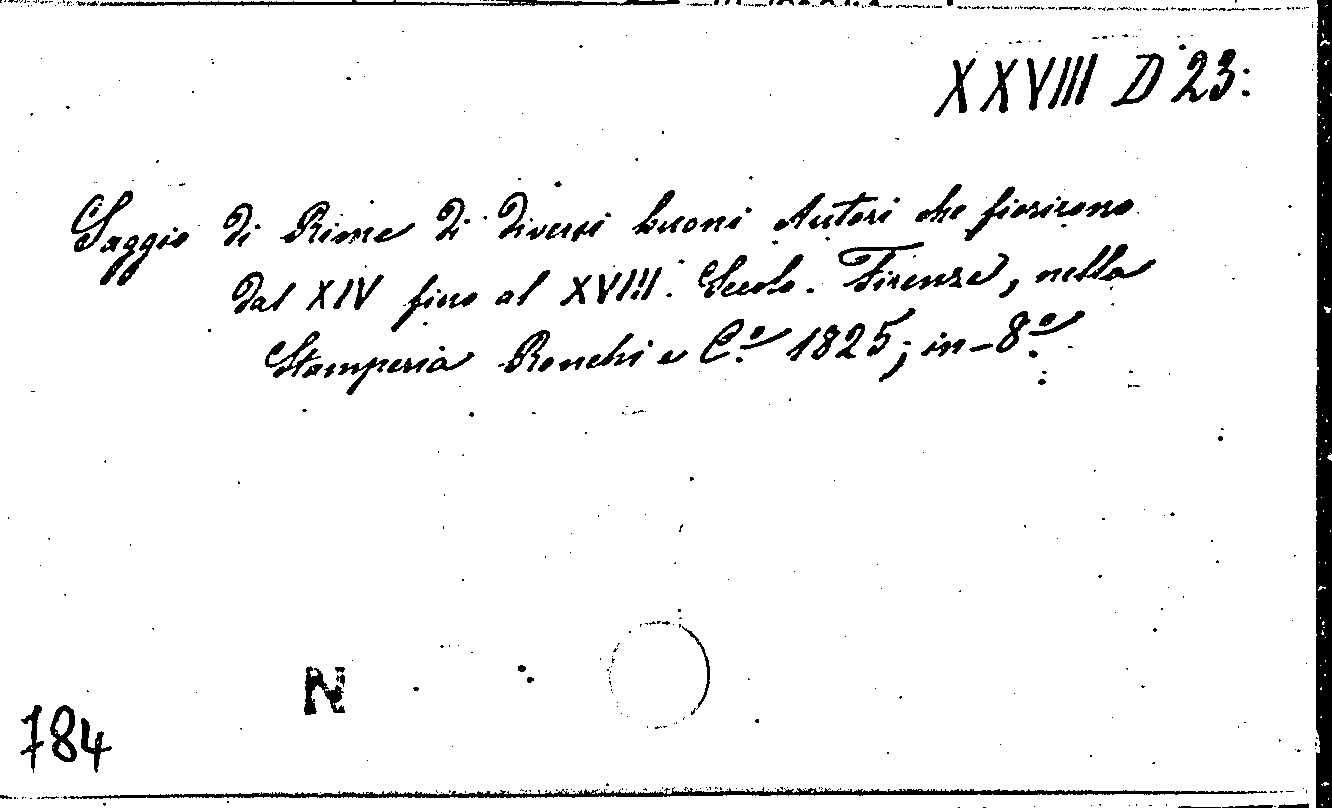 XXVIII D 23:
Saggio di Rime di diversi buoni Autori che fiorirono
dal XIV fino al XVIII. Secolo. Firenze, nella
Stamperia Ronchi e C.º 1825; in-8.º
N
784